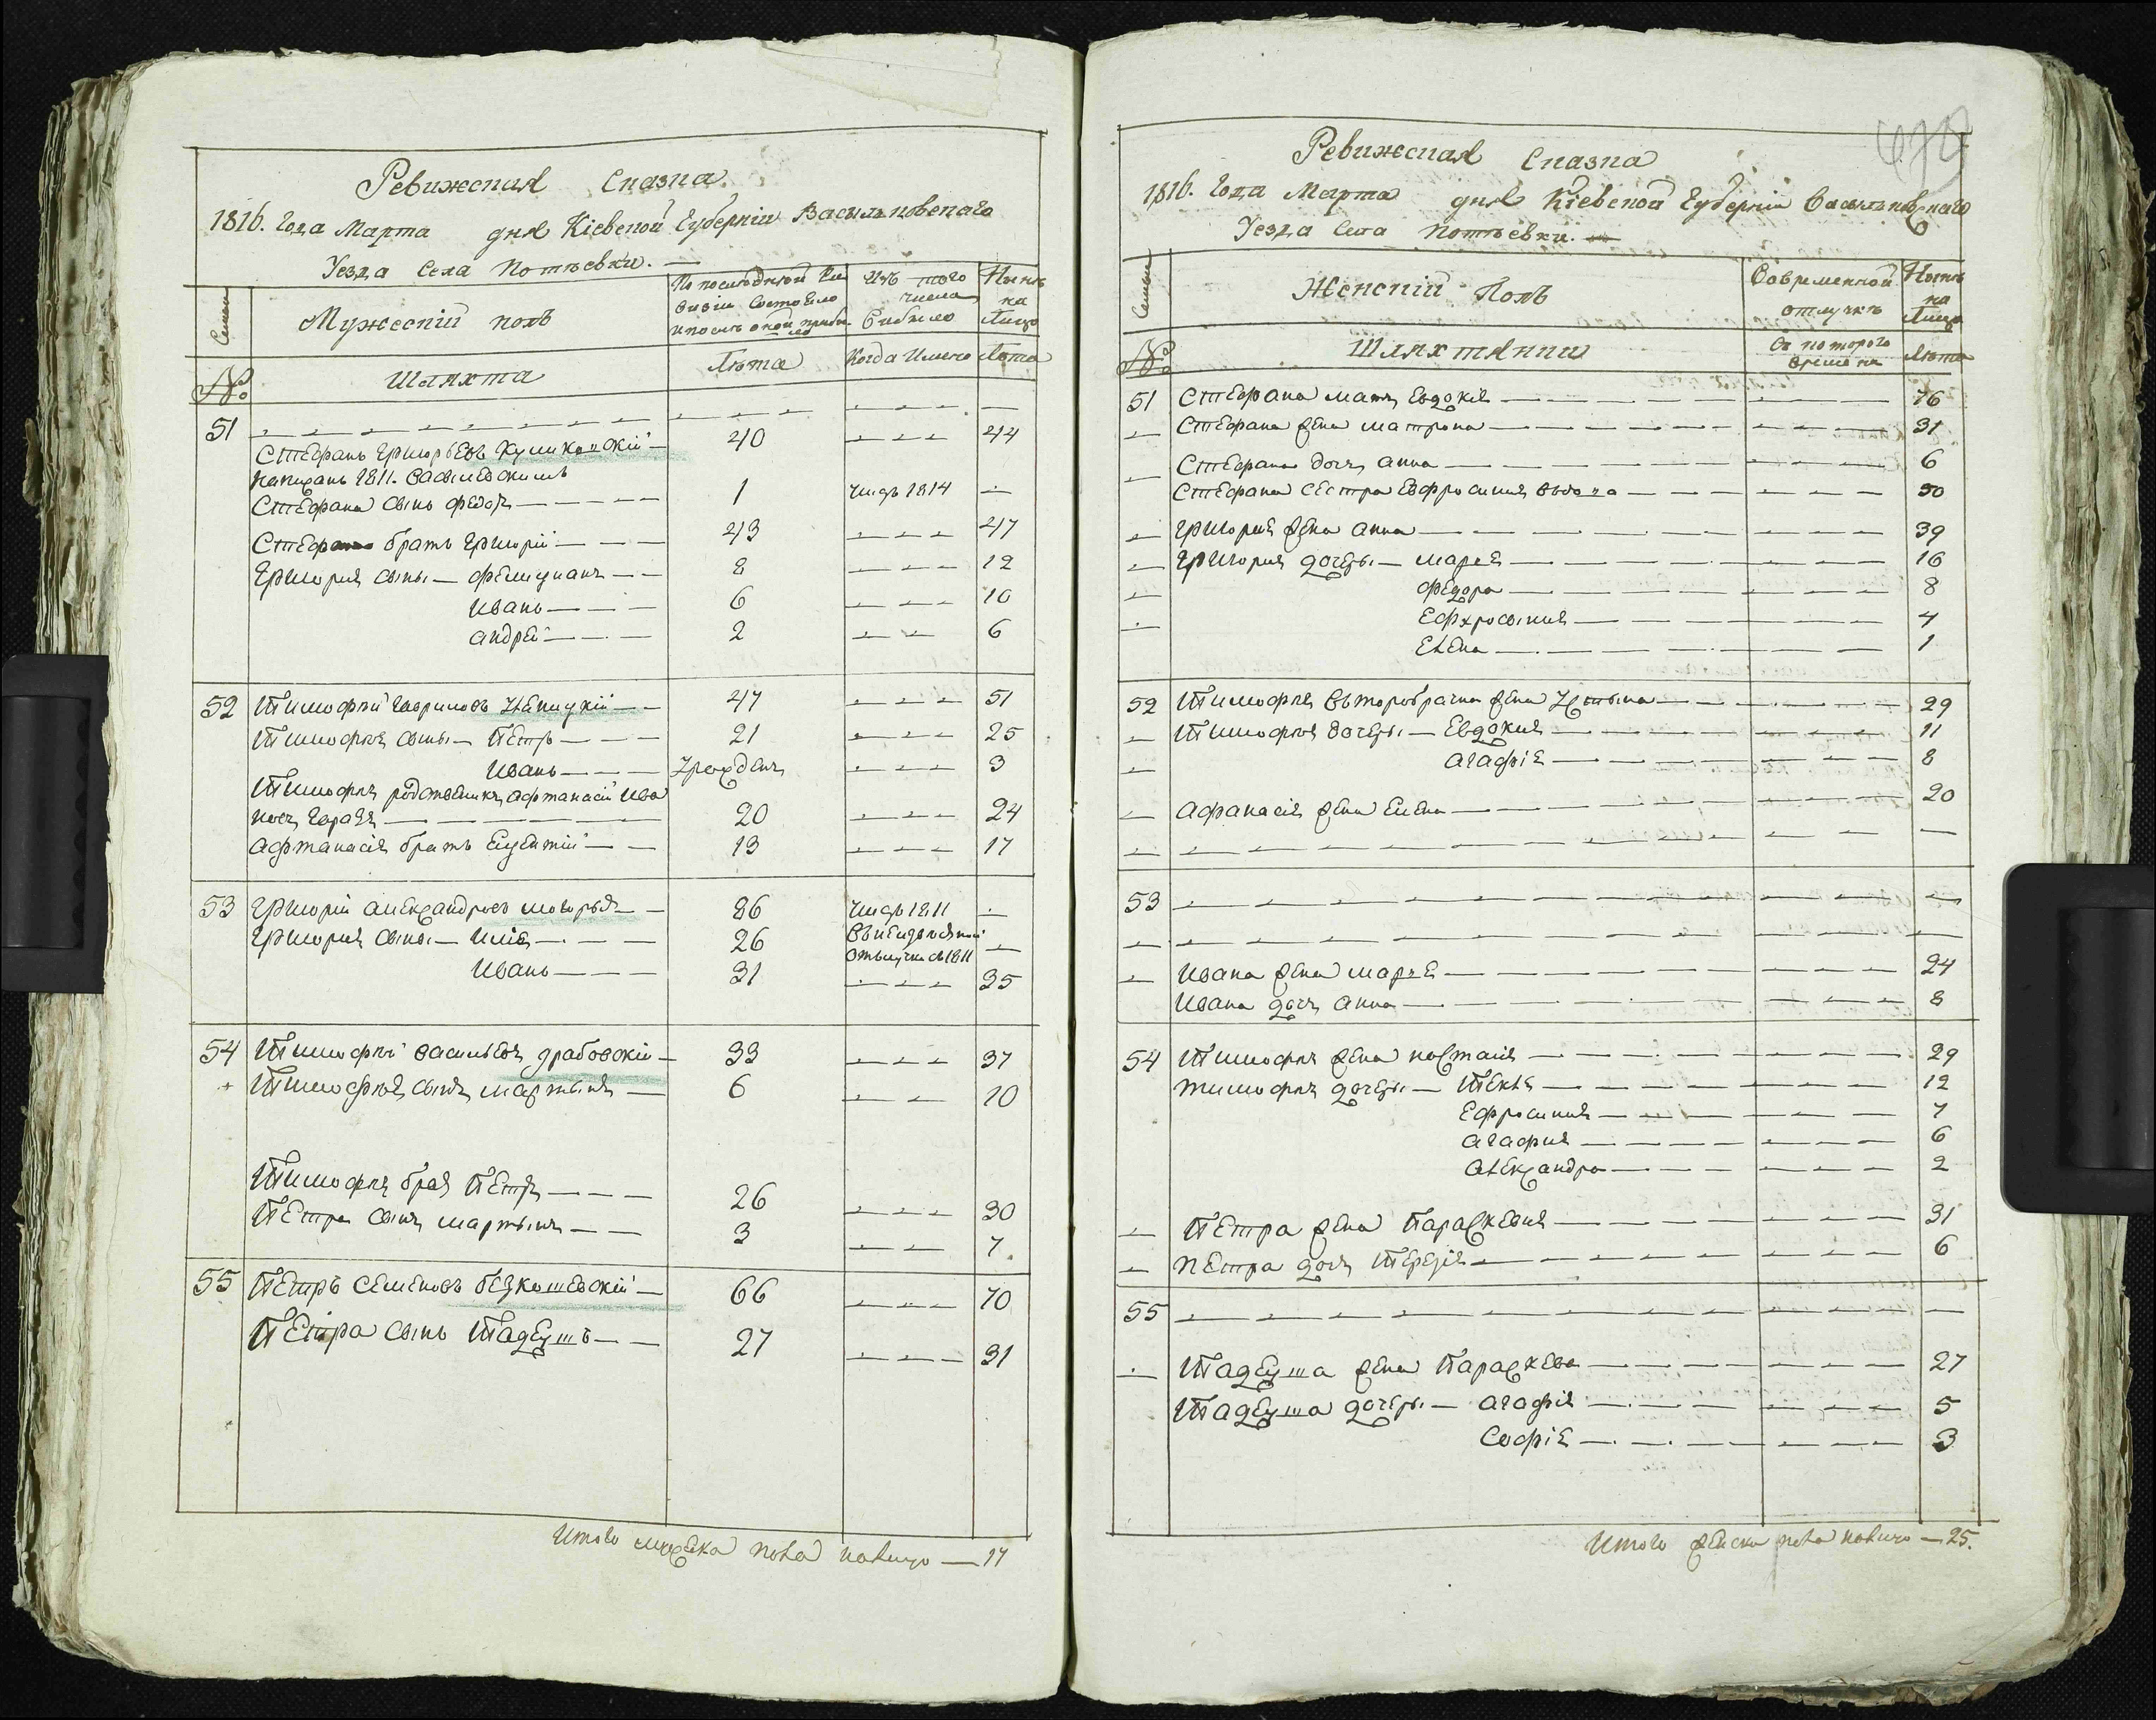 Ревижская Сказка
1816. Года Марта дня Кіевской Губерніи Васильковскаго
Уезда Села Потѣевки.
Семьи
Мужескій полъ
По последней Ре
визіи Состояло
и после оной прибы
ло
Изъ того
числа
Выбыло
Нынѣ
на
Лицо
№
Шляхта
Лѣта
Когда Имено
Лѣта
51 — — —
Стефанъ Григорьевъ 40 — — — 44
написанъ 1811.
Стефана Сынъ Федоръ — — — 1 1814 —
Стефана братъ Григорій — — — 43 — — — 47
Григорія сыны — — — 8 — — — 12
Иванъ — — — 6 — — — 10
андрей — — — 2 — — — 6
52 Тимофей Гавриловъ — — 47 — — — 51
Тимофея сыны — Петръ — — — 21 — — — 25
Иванъ — — — — — — 3
Тимофея родственикъ афтанасій Ива
новъ — — — 20 — — — 24
афтанасія братъ — — 13 — — — 17
53 Григорій александровъ — — 86 1811 —
Григорія сыны — Илія — — — 26
отлучки съ 1811 —
Иванъ — — — 31 — — — 35
54 Тимофей васильевъ драбовскій — 33 — — — 37
+ Тимофея сынъ мартынъ — 6 — — — 10
Тимофея братъ Петръ — — — 26 — — — 30
Петра сынъ мартынъ — — 3 — — — 7.
55 Петръ семеновъ — 66 — — — 70
Петра сынъ Тадеушъ — — 27 — — — 31
Итого мужеска пола налицо — 17
Ревижская Сказка
1816. Года Марта дня Кіевской Губерніи Васильковскаго
Уезда Села Потѣевки. —
Семьи
Женскій Полъ
Вовременной
отлучкѣ
Нынѣ
на
Лицо
№
Шляхтянки
Съ которого
времени
Лѣта
51 Стефана мать Евдокія — — — 76
— Стефана жена матрона — — — 31
Стефана дочь анна — — — 6
— Стефана сестра Евфросинія вдова — — — 50
— Григорія жена анна — — — 39
— Григорія дочеры — марія — — — 16
— федора — — — 8
— Ефросинія — — — 4
Елена — — — 1
52 Тимофея второбрачна жена — — — 29
— Тимофея дочеры — Евдокия — — — 11
— агафія — — — 8
— афанасія жена Елена — — — 20
— — — —
53 — — —
— — — —
— Ивана жена марія — — — 24
Ивана дочь анна — — — 8
54 Тимофея жена настасія — — — 29
тимофея дочеры — Текля — — — 12
Ефросиния — — — 7
агафия — — — 6
александра — — — 2
— Петра жена Параскевия — — — 31
— петра дочь Терезія — — — 6
55 — — —
— Тадеуша жена Параскева — — — 27
Тадеуша дочеры — агафія — — — 5
Софія — — — 3
Итого женска пола налицо — 25.